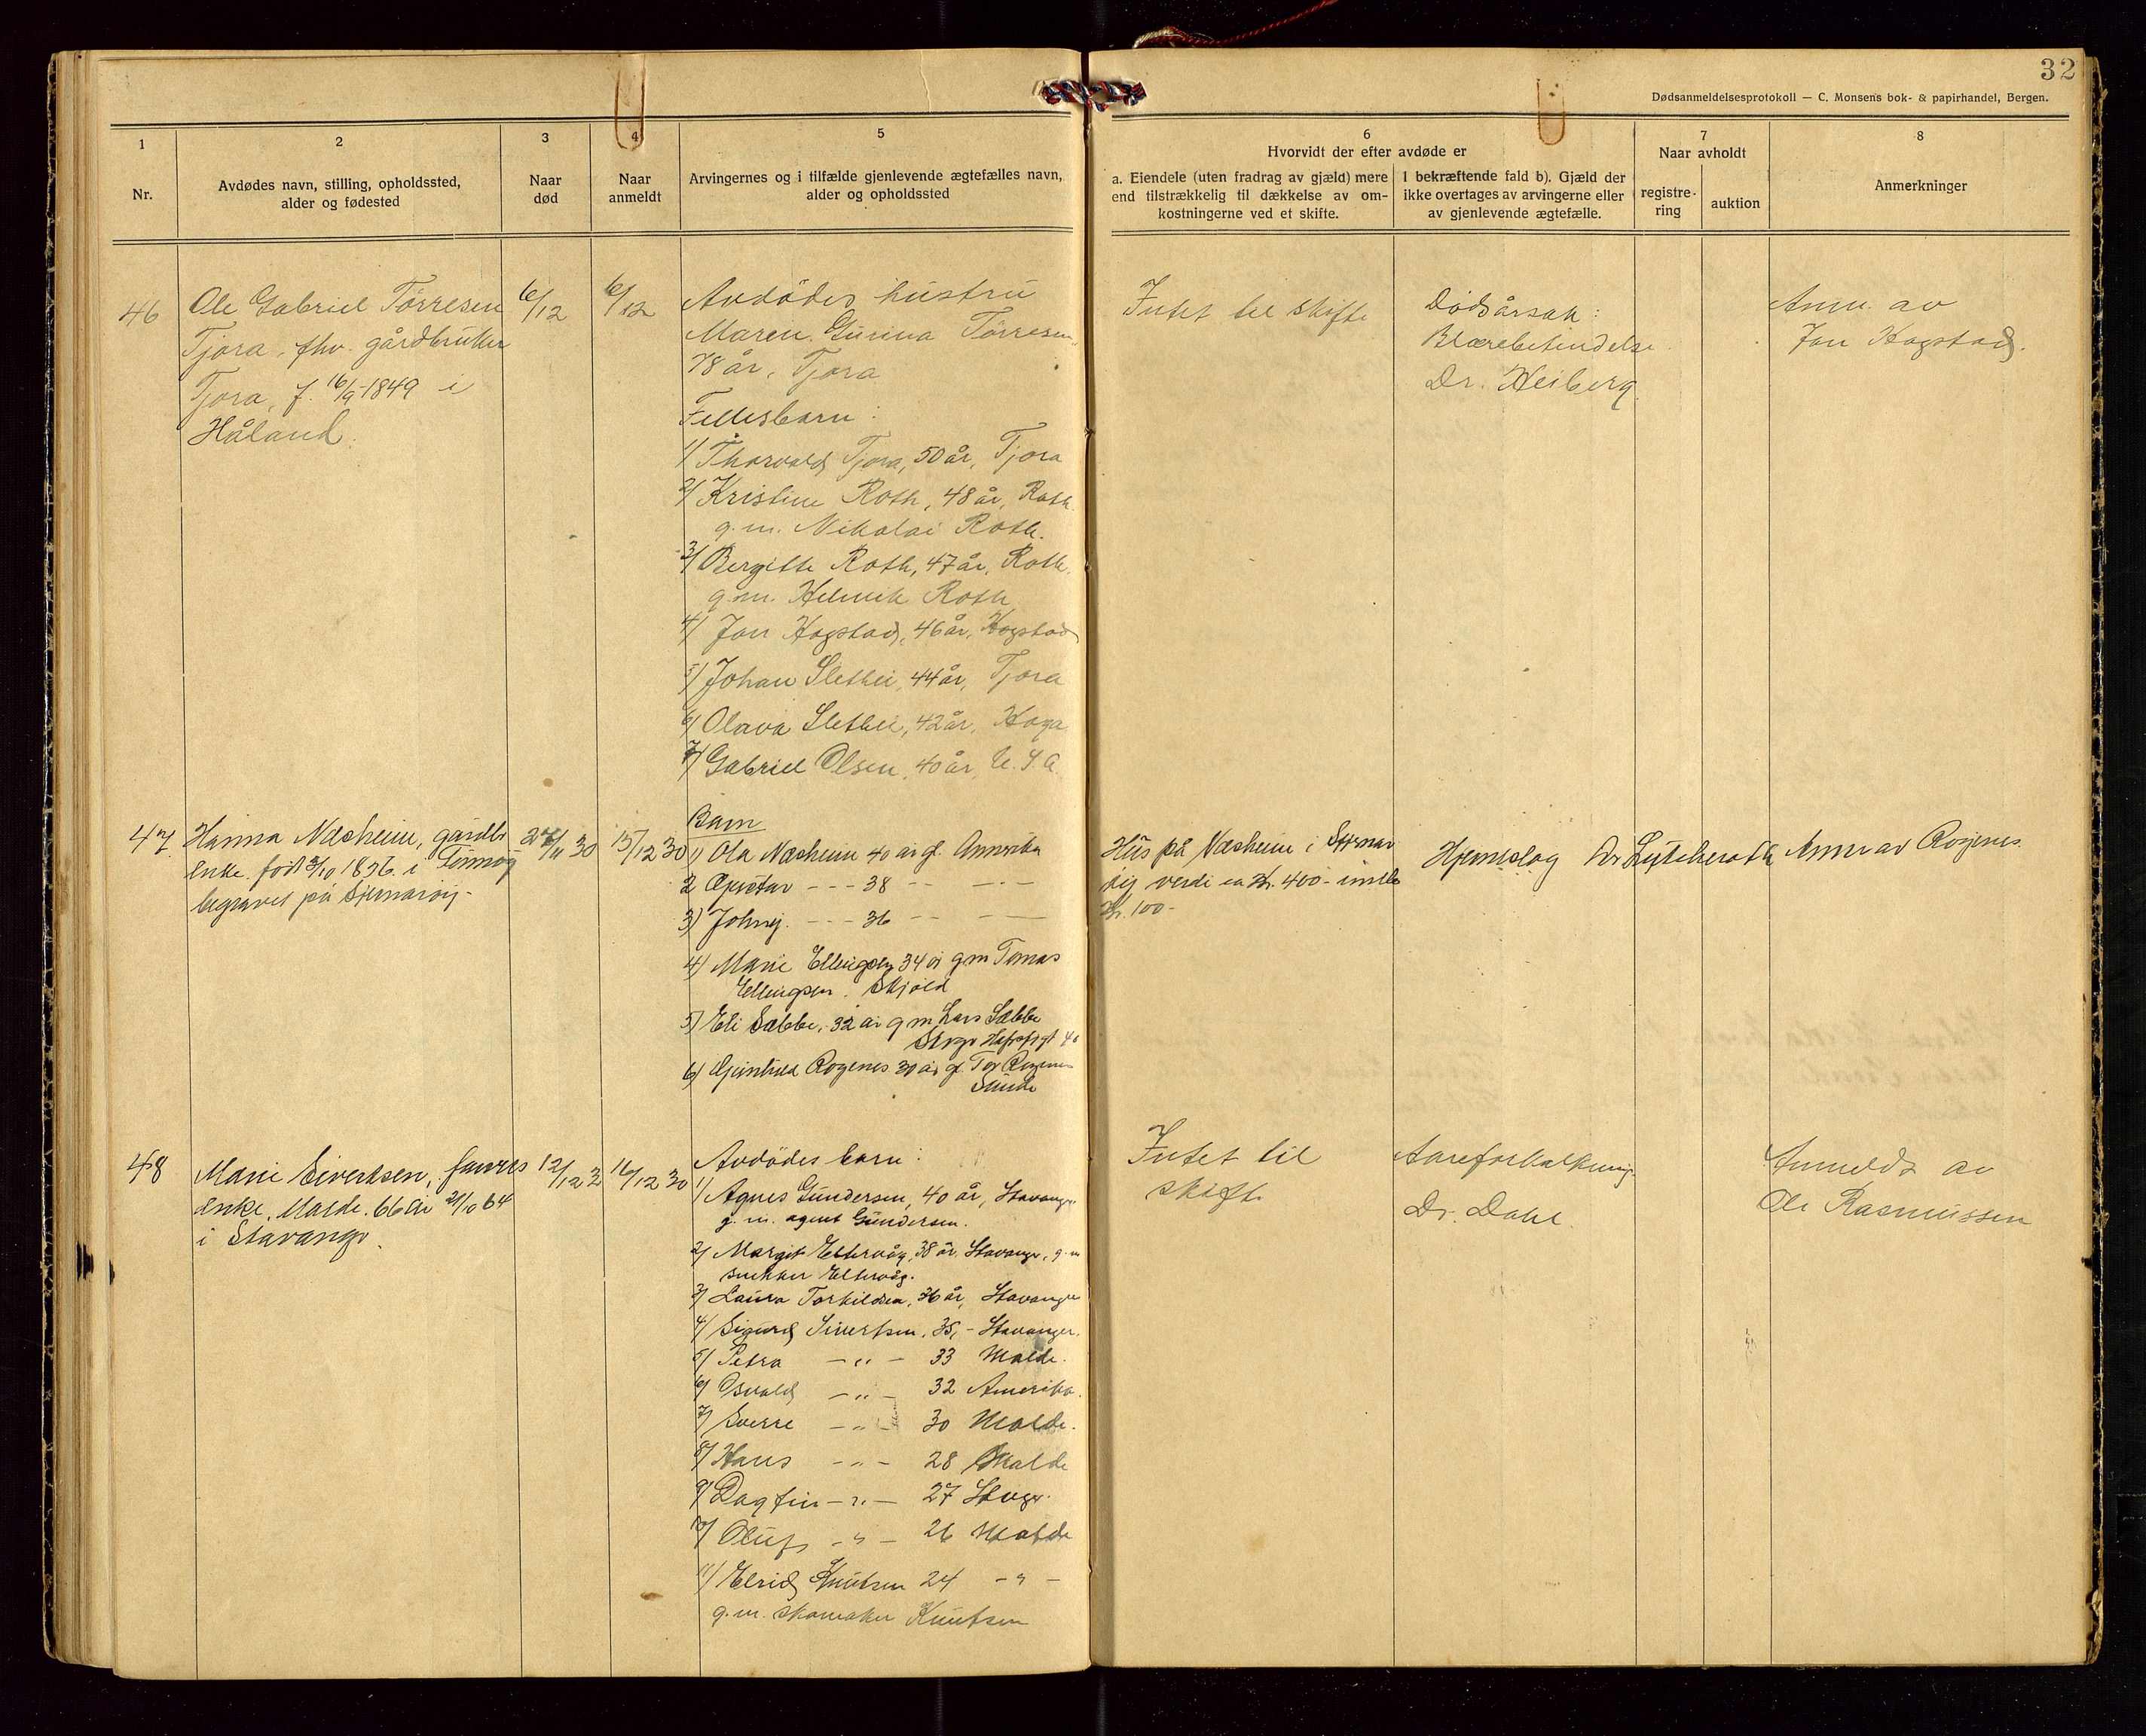 32
Dødsanmeldelsesprotokoll — C. Monsens bok- & papirhandel, Bergen.
1
Nr.
2
Avdødes navn, stilling, opholdssted,
alder og fødested
3
Naar
død
4
Naar
anmeldt
5
Arvingernes og i tilfælde gjenlevende ægtefælles navn,
alder og opholdssted
6
Hvorvidt der efter avdøde er
a. Eiendele (uten fradrag av gjæld) mere
end tilstrækkelig til dækkelse av om-
kostningerne ved et skifte.
I bekræftende fald b). Gjæld der
ikke overtages av arvingerne eller
av gjenlevende ægtefælle.
7
Naar avholdt
registre-
ring
auktion
8
Anmerkninger
46
Ole Gabriel Tørresen
Tjora, fhv. gårdbruker
Tjora, f. 16/9-1849 i
Håland.
6/12
6/12
Avdødes hustru
Maren Gurina Tørresen,
78 år, Tjora
Fellesbarn:
1/ Thorvald Tjora, 50 år, Tjora
2/ Kristine Roth, 48 år, Roth
g.m. Nikolai Roth.
3/ Bergitte Roth, 47 år, Roth,
g.m. Helmik Roth
4/ Jon Hogstad, 46 år, Hogstad
5/ Johan Slethei, 44 år, Tjora
6/ Olava Slethei, 42 år, Haga
7/ Gabriel Olsen, 40 år, U.S.A.
Intet til skifte
Dødsårsak:
Blærebetendelse.
Dr. Heiberg
Anm. av
Jon Hogstad.
47
Hanna Næsheim, gårdbr
enke. født 2/10 1856 i
begravet på Sjernarøy-
27/11 30
15/12 30
Barn
1) Ola Næsheim 40 år g. Amerika
2 - - - 38 - - — - —
3) Johny. - - - 36 - - - —
4) Marie Ellingsen 34 år g m Tomas
Ellingsen. Skjold
5) Eli Sæbbe, 32 år g m Lars Sæbbe
Stvgr 40
6) Gunhild Rogenes 30 år g. Tor Rogenes
Sunde
Hus på Næsheim i Sjernar
øy verdi ca Kr. 400- innbo
Kr. 100-
Hjerneslag Dr Lütcherath
Anm av Rogenes
48
Marie Sivertsen,
enke. Malde. 66 år 21/10 64
i Stavanger.
12/12 3
16/12 30
Avdødes barn:
1/ Agnes Gundersen, 40 år, Stavanger
g.m. agent Gundersen.
2/ Margit Eltervåg, 38 år, Stavanger, g.m
snekker Eltervåg.
3/ Laura Torkildsen, 36 år, Stavanger
4/ Sigurd Sivertsen, 35, - Stavanger.
5/ Petra — " — 33 Malde.
6/ Osvald — " — 32 Amerika.
7/ Sverre — " — 30 Malde.
8/ Hans — " — 28 Malde
9/ Dagfin — " — 27 Stvgr.
10/ Oluf — " — 26 Malde
11/ Elrid Knutsen 24 — " —
g.m. skomaker Knutsen
Intet til
skifte
Aareforkalkning.
Dr. Dahl.
Anmeldt av
Ole Rasmussen